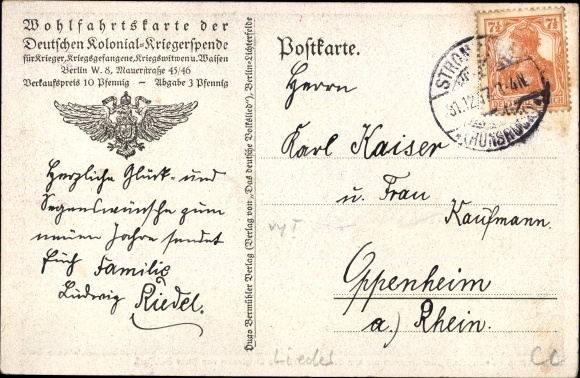 Wohlfahrtskarte der
Deutschen Kolonial-Kriegerspende
für Krieger, Kriegsgefangene, Kriegswitwen u. Waisen
Berlin W. 8, Mauerstraße 45/46
Verkaufspreis 10 Pfennig — Abgabe 3 Pfennig
Herzliche Glück- und
Segenswünsche zum
neuen Jahre sendet
Euch Familie
Ludwig Riedel.
Hugo Bermühler Verlag (Verlag von „Das deutsche Volkslied“), Berlin-Lichterfelde
Postkarte.
7½ 7½
STROM
31.12.17
(HUNSRÜCK)
Herrn
Karl Kaiser
u. Frau
Kaufmann.
Oppenheim
a) Rhein.
Lieder